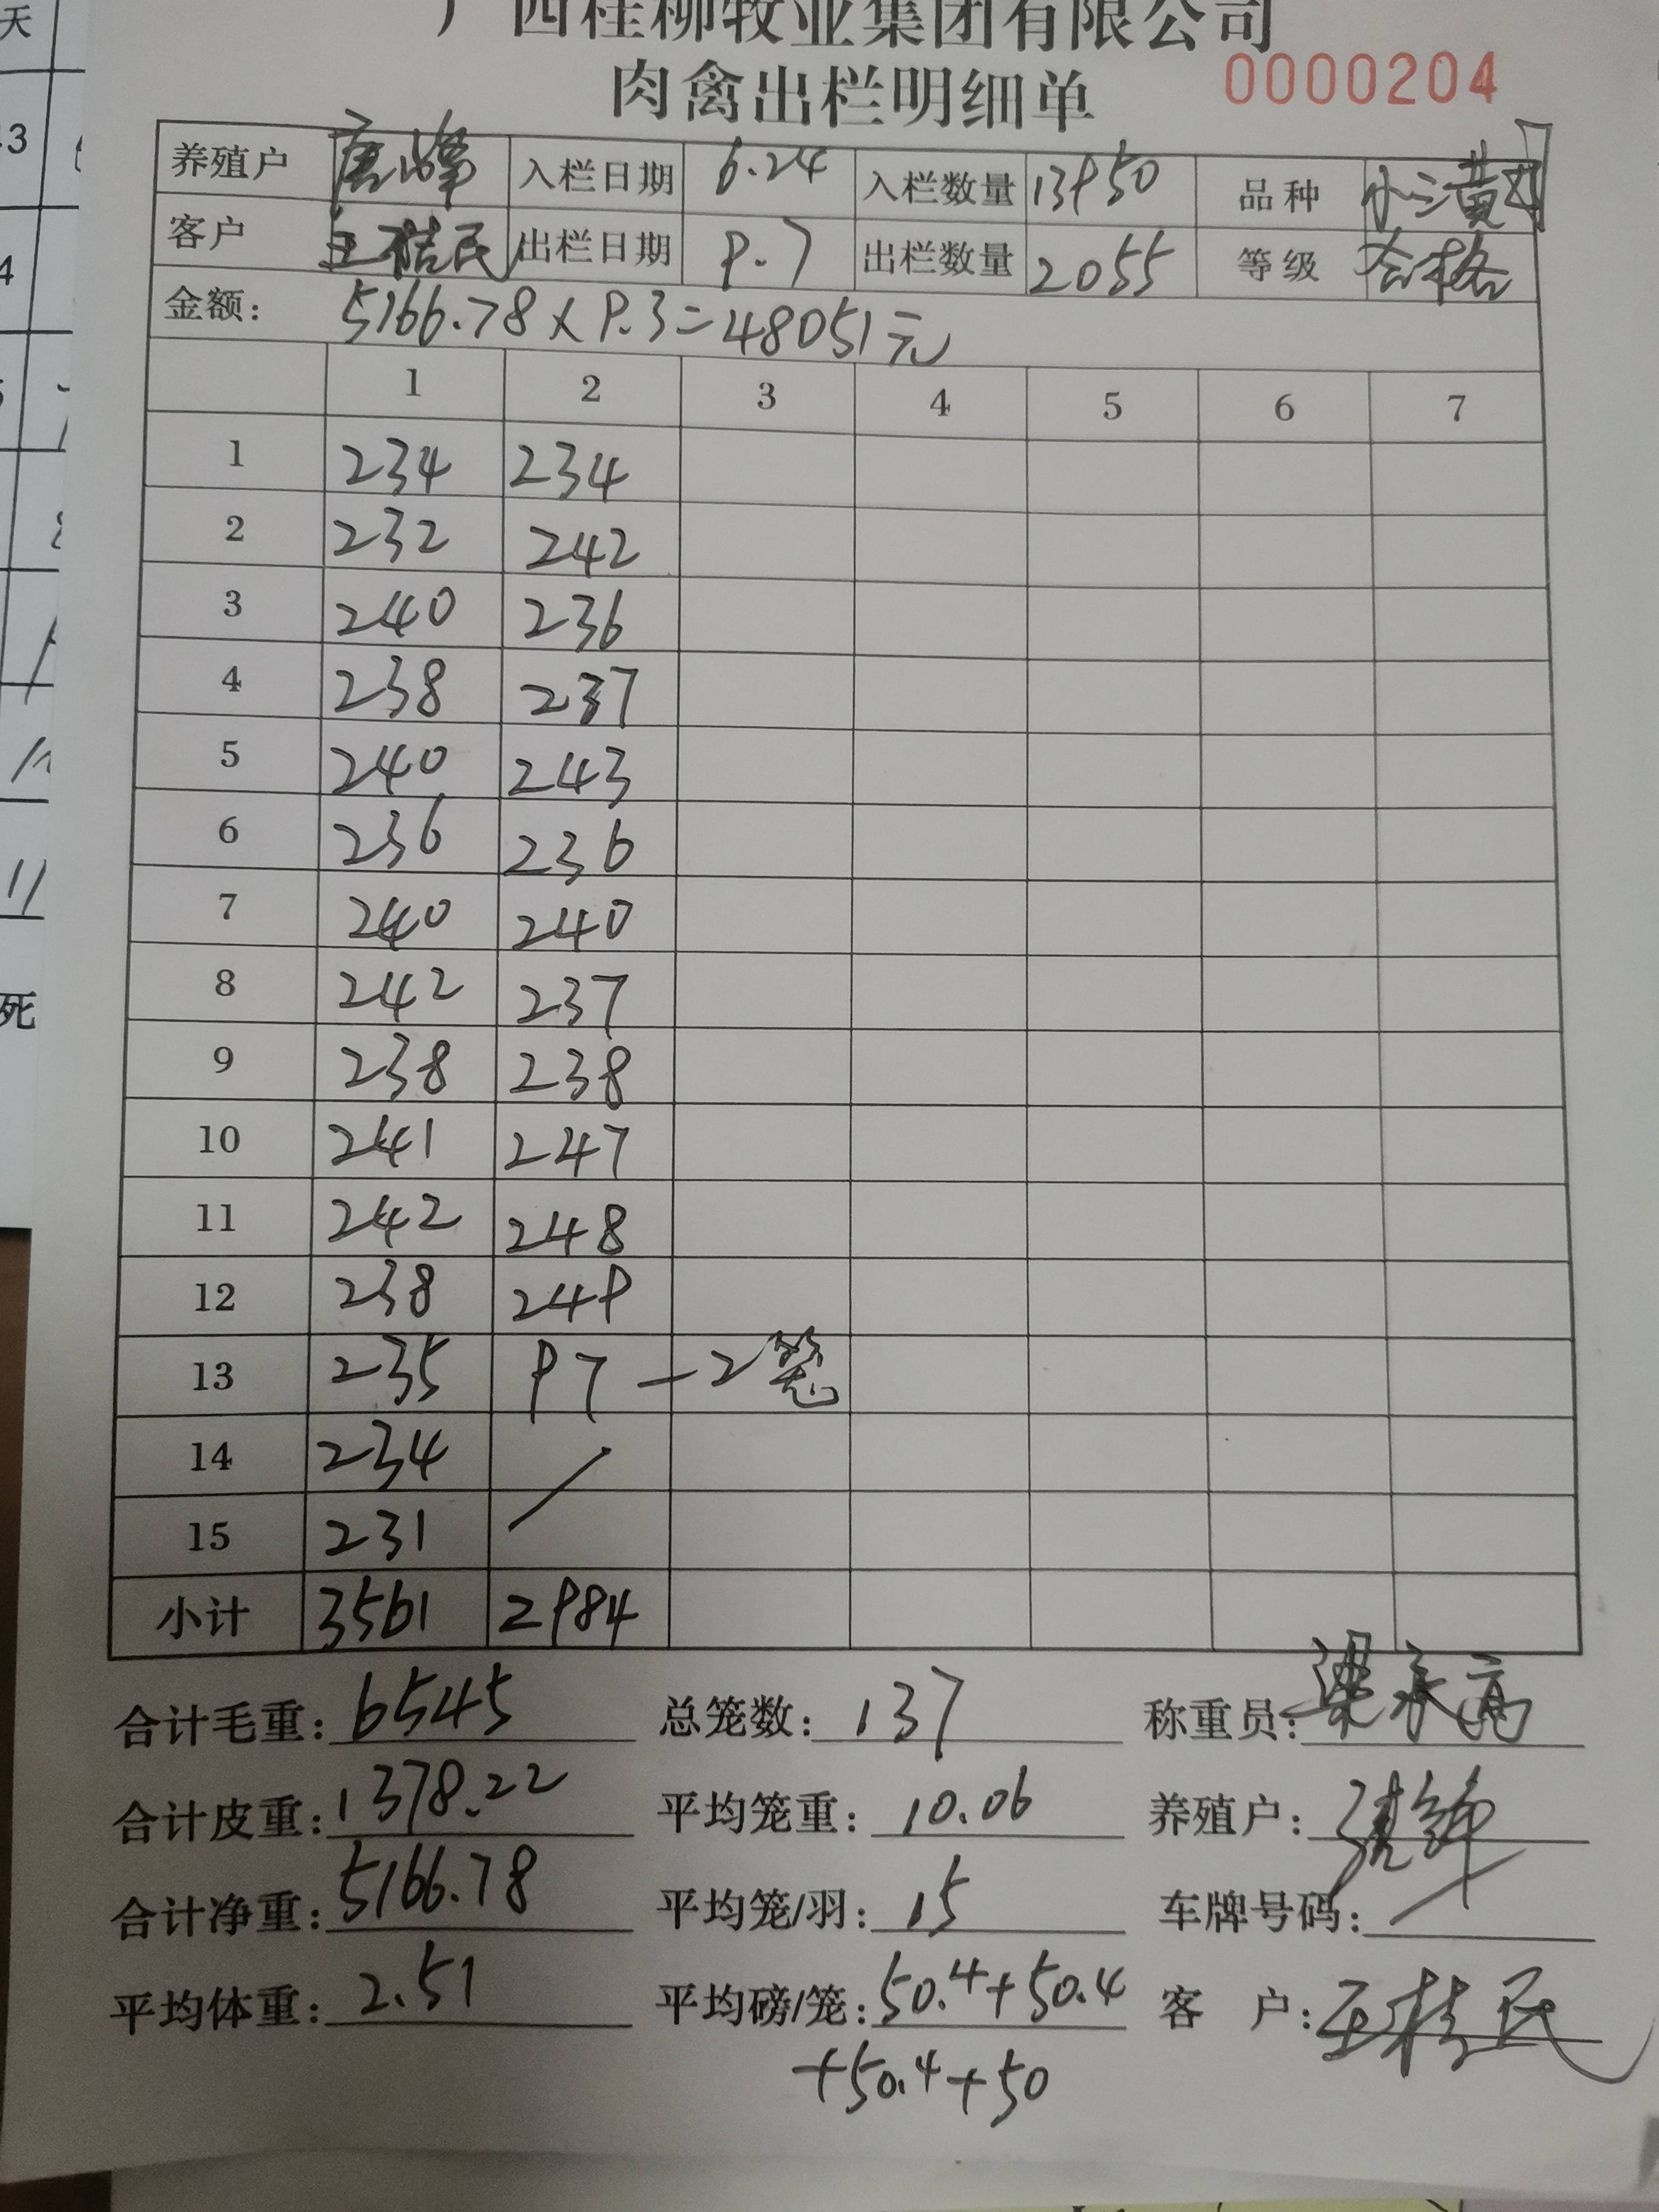 广西桂柳牧业集团有限公司
肉禽出栏明细单 0000204
养殖户 唐峰 入栏日期 6.24 入栏数量 13950 品种 小三黄
客户 王桂民 出栏日期 9.7 出栏数量 2055 等级 合格
金额: 5166.78×9.3=48051元
1 2 3 4 5 6 7
1 234 234
2 232 242
3 240 236
4 238 237
5 240 243
6 236 236
7 240 240
8 242 237
9 238 238
10 241 247
11 242 248
12 238 249
13 235 97—2笼
14 234
15 231
小计 3561 2984
合计毛重: 6545 总笼数: 137 称重员: 梁承高
合计皮重: 1378.22 平均笼重: 10.06 养殖户:
合计净重: 5166.78 平均笼/羽: 15 车牌号码:
平均体重: 2.51 平均磅/笼: 50.4+50.4 客 户: 王桂民
+50.4+50
天
3
4
死